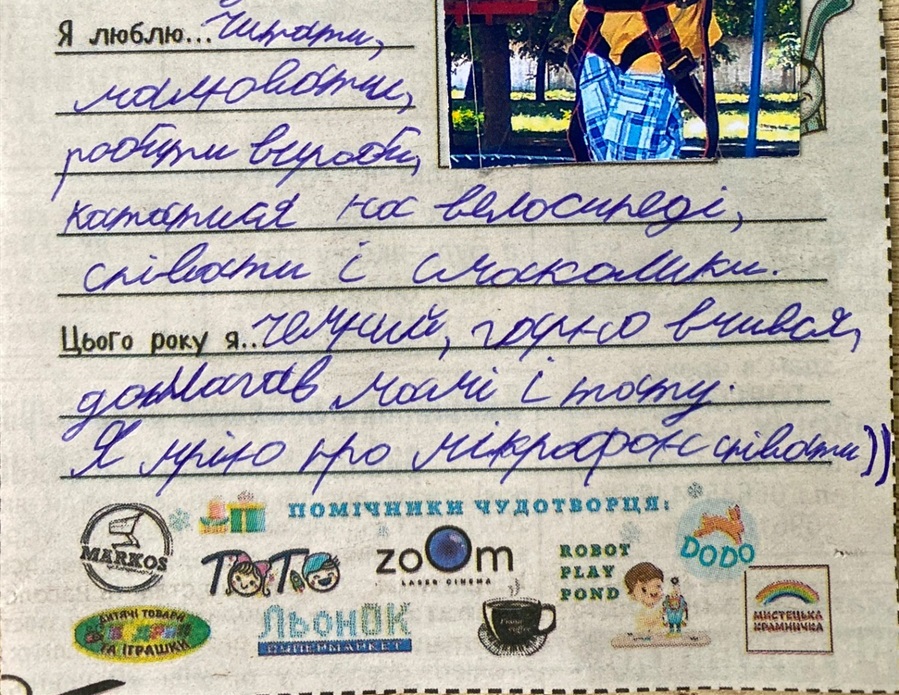 Я люблю... Читати,
малювати,
робити вироби,
кататися на велосипеді,
співати і смаколики.
Цього року я.. чемний, гарно вчився,
допомагав мамі і тату.
Я мрію про мікрофон співати))
ПОМІЧНИКИ ЧУДОТВОРЦЯ:
MARKOS
ТОТО
zoom
LASER CINEMA
ROBOT
PLAY
POND
DODO
ДИТЯЧІ ТОВАРИ
ТА ІГРАШКИ
ЛЬОНОК
СУПЕРМАРКЕТ
МИСТЕЦЬКА
КРАМНИЧКА